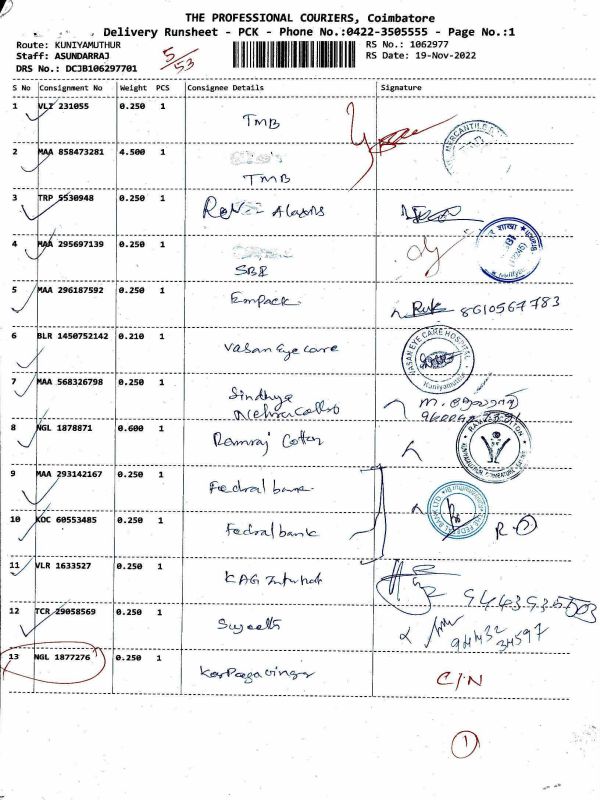 THE PROFESSIONAL COURIERS, Coimbatore
Delivery Runsheet - PCK - Phone No.:0422-3505555 - Page No.:1
Route: KUNIYAMUTHUR
RS No.: 1062977
Staff: ASUNDARRAJ
5/53
RS Date: 19-Nov-2022
DRS No.: DCJB106297701
S No Consignment No Weight PCS Consignee Details Signature
1 VLI 231055 0.250 1
TMB
2 MAA 858473281 4.500 1
TMB
3 TRP 5530948 0.250 1
4 MAA 295697139 0.250 1
SBI
5 MAA 296187592 0.250 1
Empack 8610567783
6 BLR 1450752142 0.210 1
Vasan Eye care
VASAN EYE CARE HOSPITAL
Kuniyamuthur
7 MAA 568326798 0.250 1
Sindhya
8 NGL 1878871 0.600 1
Ramraj Cotton
9 MAA 293142167 0.250 1
Fedral bank
10 KOC 60553485 0.250 1
Fedral bank
11 VLR 1633527 0.250 1
KAG
12 TCR 29058569 0.250 1
Sujeeth
94432
34597
13 NGL 1877276 0.250 1
Karpagavinaga
C/N
1